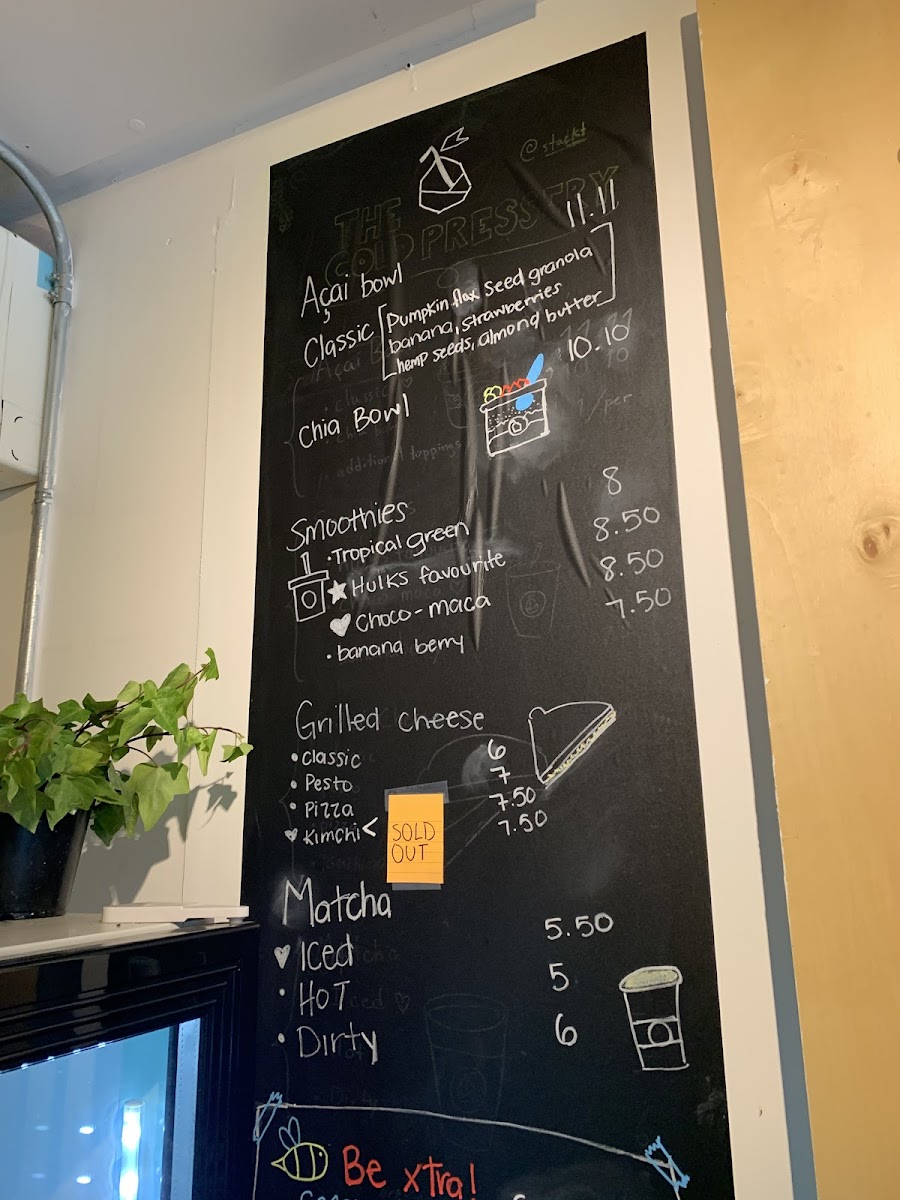 @stackt
THE
COLD PRESSTRY
11.11
Açai bowl
Classic [Pumpkin flax seed granola
banana, strawberries
hemp seeds, almond butter]
10.10
Chia Bowl
additional toppings 1/per
Smoothies
• Tropical green 8
Hulks favourite 8.50
Choco-maca 8.50
• banana berry 7.50
Grilled cheese
• Classic 6
• Pesto 7
• Pizza 7.50
Kimchi < 7.50
SOLD
OUT
Matcha
Iced 5.50
• HOT 5
• Dirty 6
Be xtra!